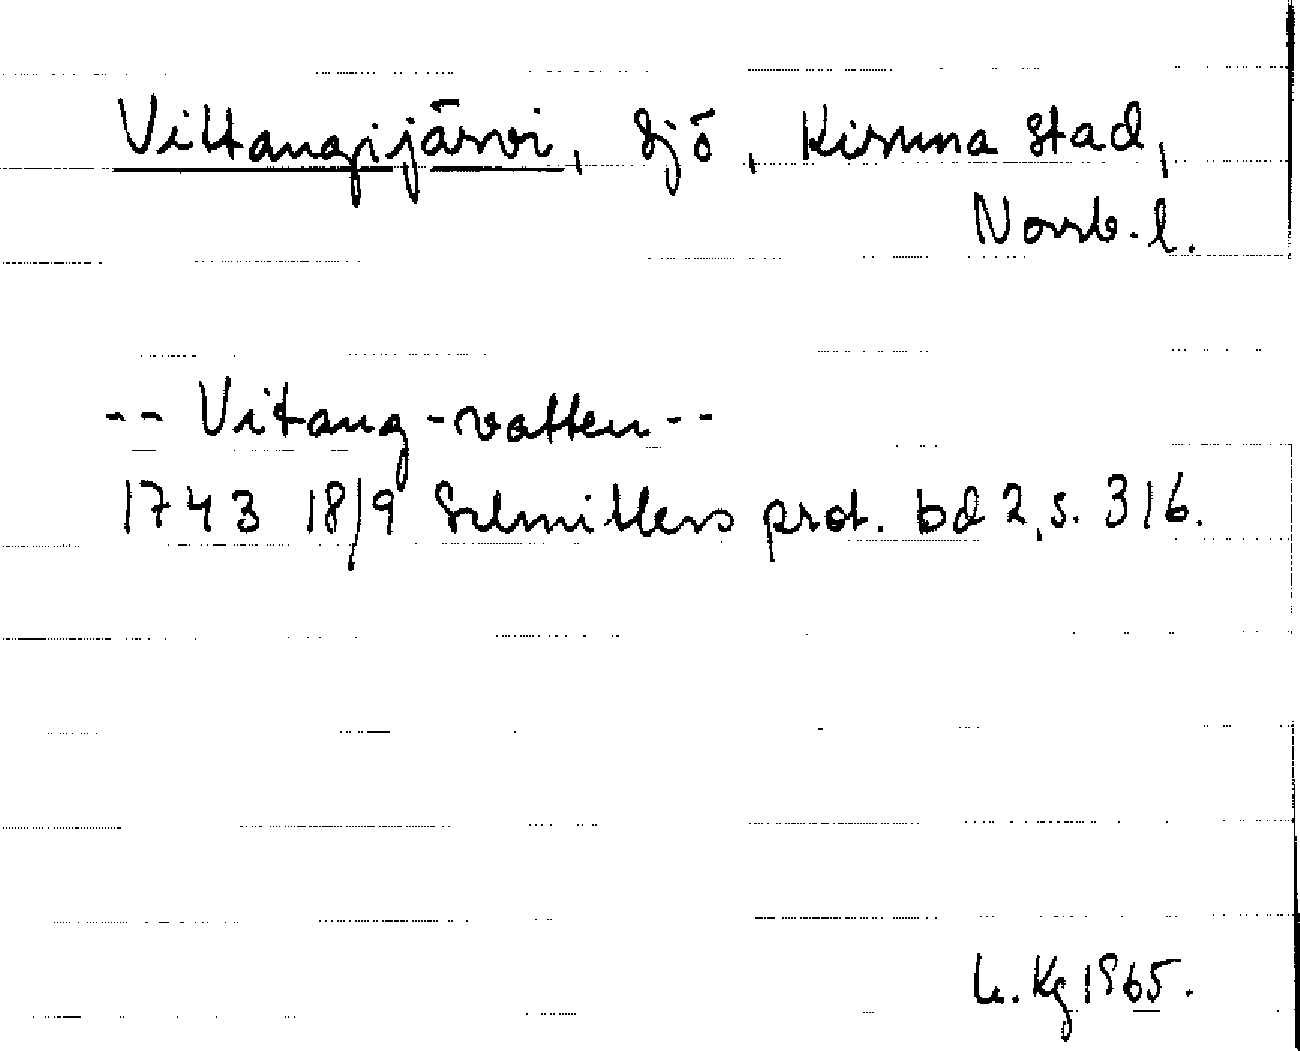 Vittangijärvi, sjö, Kiruna stad,
Norrb. l.
-- Vitang-vatten --
1743 18/9 Schnitlers prot. bd 2, s. 316.
Kg 1965.